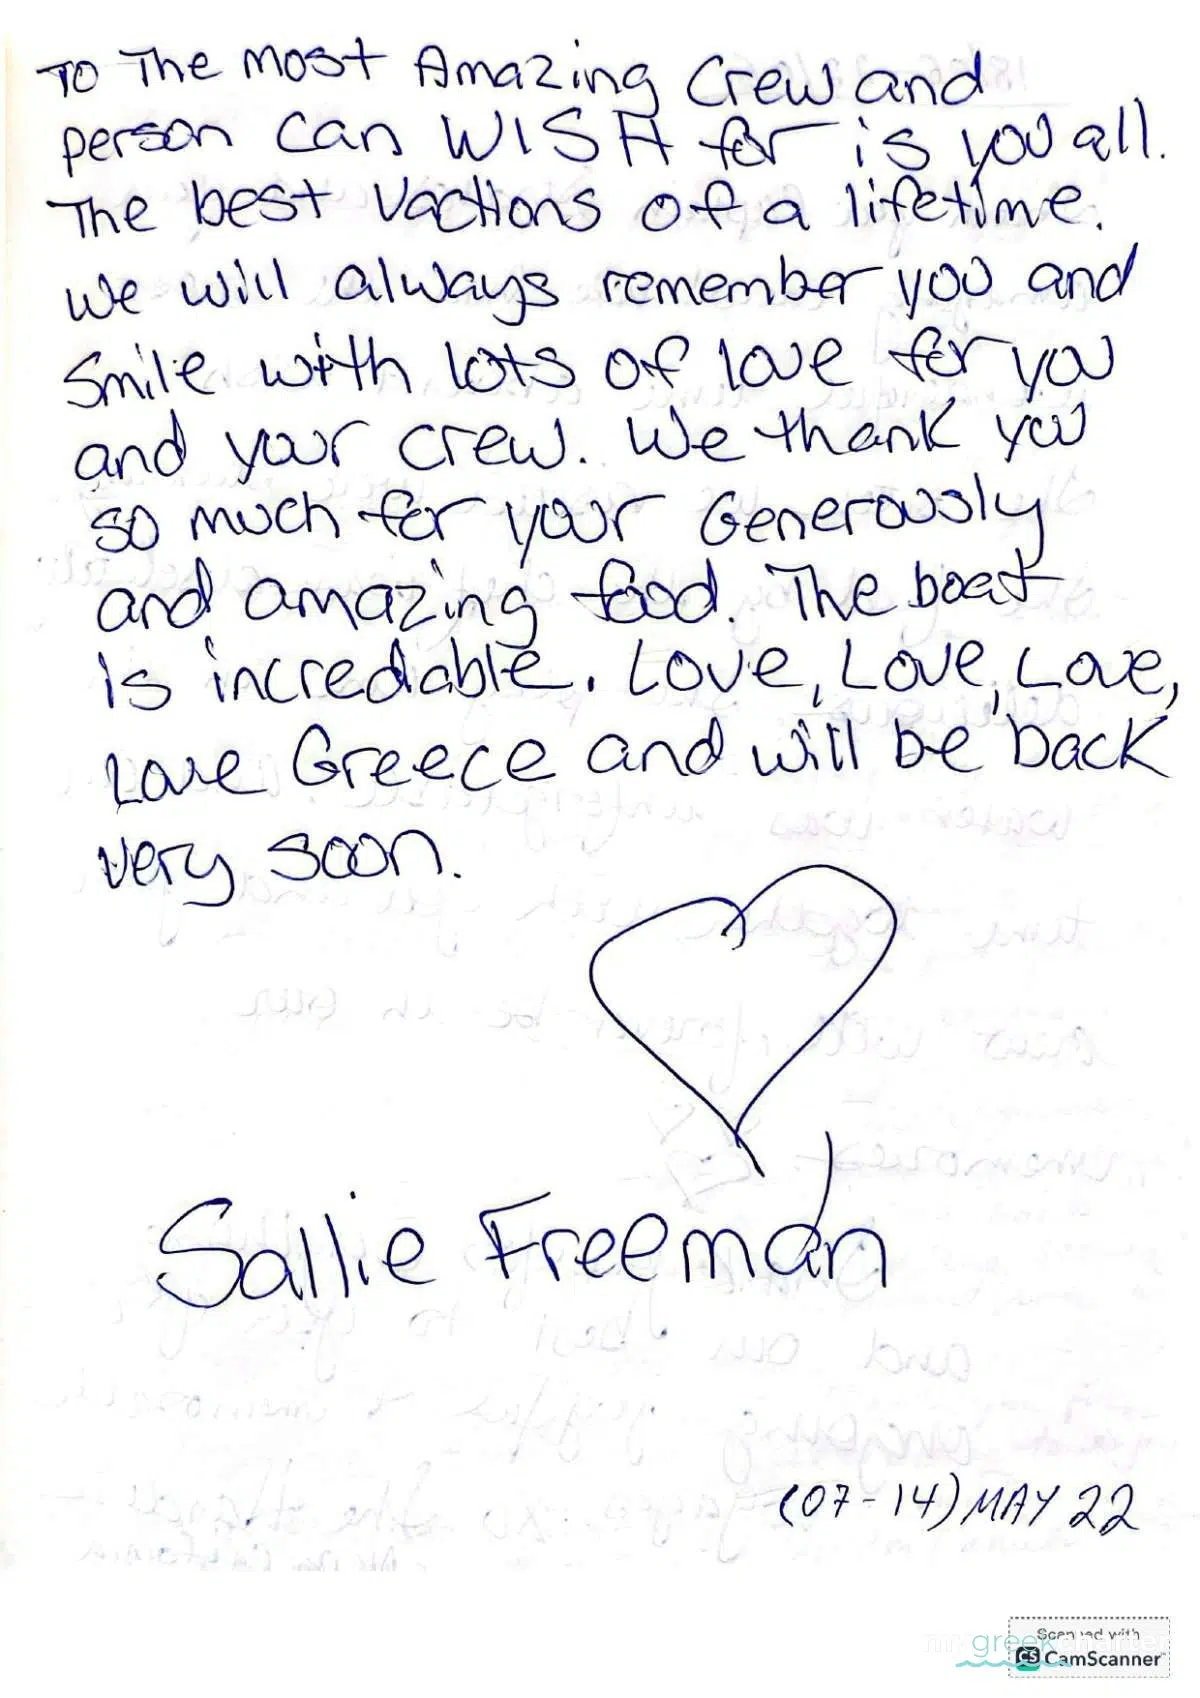 To The most Amazing Crew and
person can WISH for is you all.
The best Vactions of a lifetime.
We will always remember you and
Smile with lots of love for you
and your crew. We thank you
so much for your Generously
and amazing food. The boat
is incrediable. Love, Love, Love,
Love Greece and will be back
very soon.
Sallie Freeman
(07-14) MAY 22
Scanned with
greekcharter
CS CamScanner